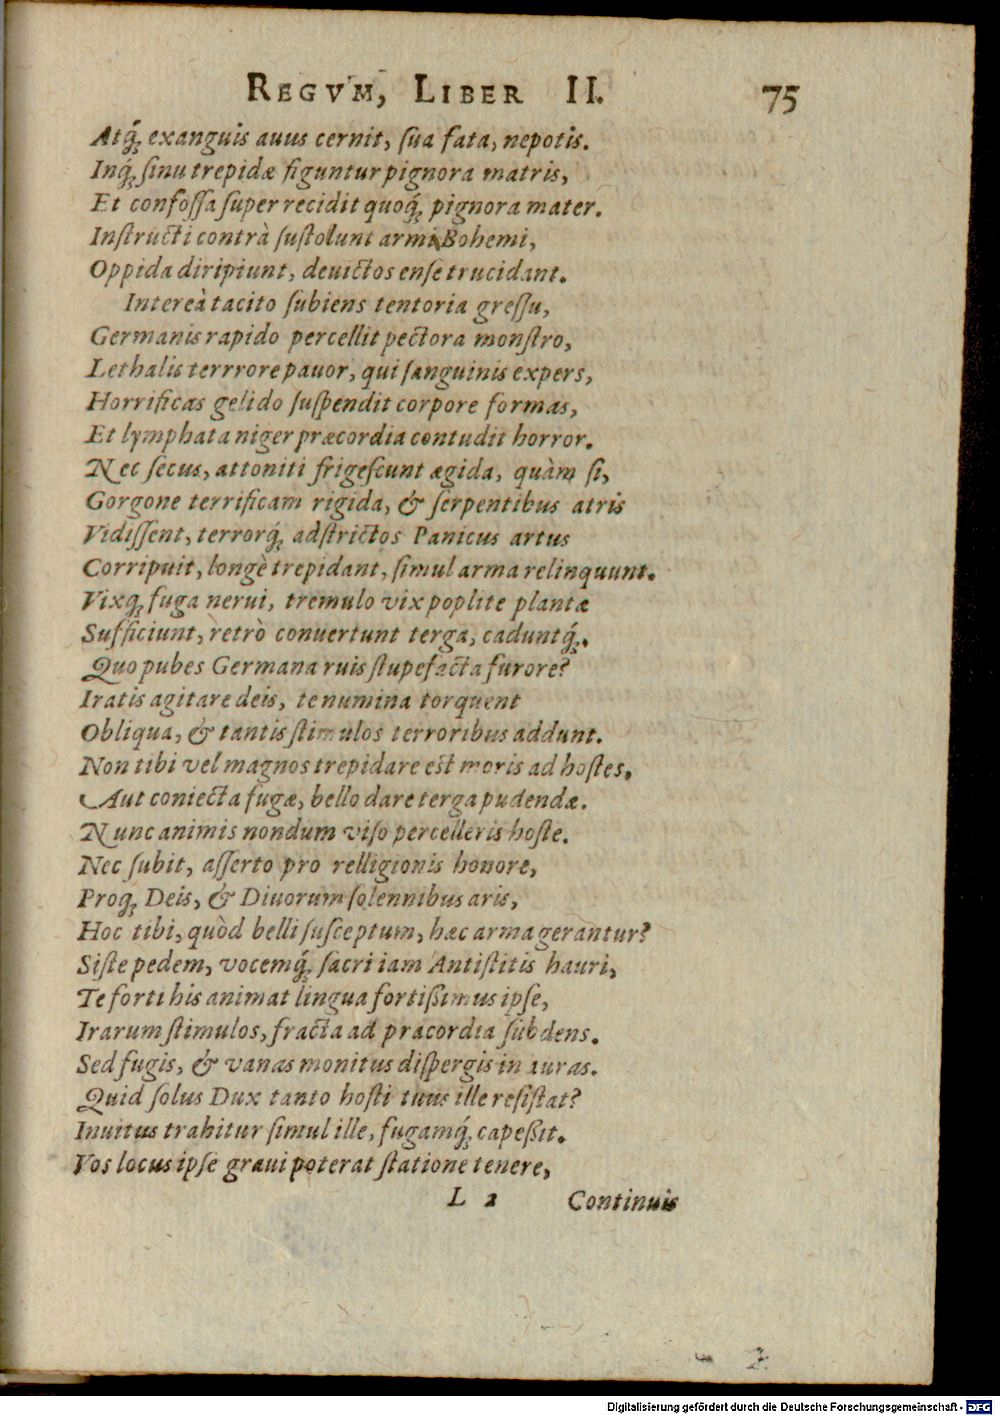 REGVM, LIBER II. 75
Atq́; exanguis auus cernit, ſua fata, nepotis.
Inq́; ſinu trepidæ figuntur pignora matris,
Et confoſſa ſuper recidit quoq́; pignora mater.
Inſtructi contrà ſuſtolunt arma Bohemi,
Oppida diripiunt, deuictos enſe trucidant.
Intereà tacito ſubiens tentoria greſſu,
Germanis rapido percellit pectora monſtro,
Lethalis terrrore pauor, qui ſanguinis expers,
Horrificas gelido ſuſpendit corpore formas,
Et lymphata niger præcordia contudit horror.
Nec ſecus, attoniti frigeſcunt ægida, quàm ſi,
Gorgone terrificam rigida, & ſerpentibus atris
Vidiſſent, terrorq́; adſtrictos Panicus artus
Corripuit, longè trepidant, ſimul arma relinquunt.
Vixq; fuga nerui, tremulo vix poplite plantæ
Sufficiunt, retrò conuertunt terga, caduntq́;.
Quo pubes Germana ruis ſtupefacta furore?
Iratis agitare deis, te numina torquent
Obliqua, & tantis ſtimulos terroribus addunt.
Non tibi vel magnos trepidare est moris ad hoſtes,
Aut coniecta fugæ, bello dare terga pudendæ.
Nunc animis nondum viſo percelleris hoſte.
Nec ſubit, aſſerto pro relligionis honore,
Proq; Deis, & Diuorum ſolennibus aris,
Hoc tibi, quòd belli ſuſceptum, hæc arma gerantur?
Siſte pedem, vocemq́; ſacri iam Antiſtitis hauri,
Te forti his animat lingua fortißimus ipſe,
Irarum ſtimulos, fracta ad præcordia ſubdens.
Sed fugis, & vanas monitus diſpergis in auras.
Quid ſolus Dux tanto hoſti tuus ille reſiſtat?
Inuitus trahitur ſimul ille, fugamq́; capeßit.
Vos locus ipſe graui poterat ſtatione tenere,
L 2 Continuis
Digitalisierung gefördert durch die Deutsche Forschungsgemeinschaft - DFG